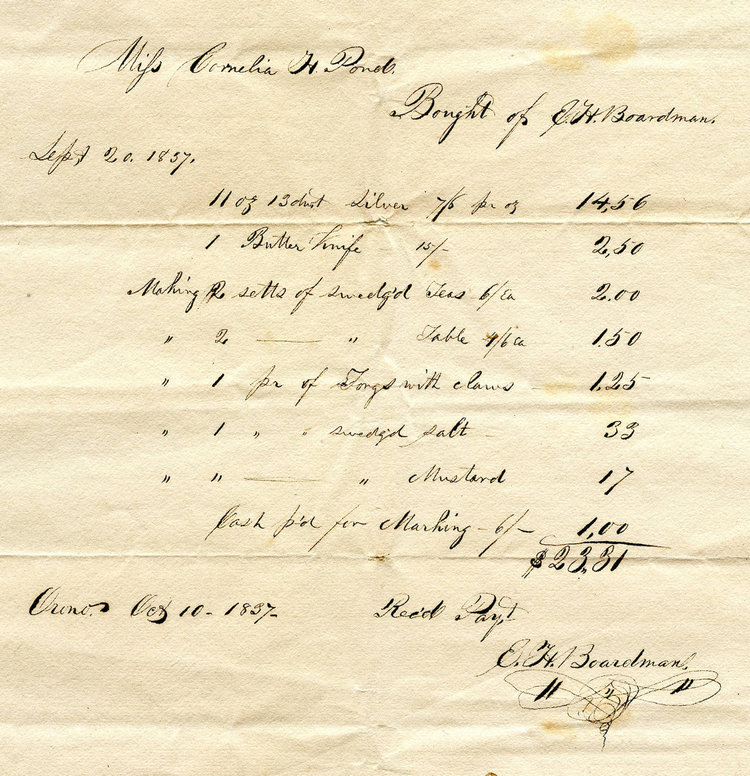 Miss Cornelia H. Pond.
Bought of E.H. Boardman.
Sept 20. 1837.
11 oz 13dwt Silver 7/6 pr oz 14,56
1 Butter Knife 15/- 2,50
Making 2 setts of swedg'd Teas 6/ Ea 2.00
" 2 —— " Table 4/6 ea 1.50
" 1 pr of Tongs with claws - 1,25
" 1 " " swedg'd salt - 33
" " —— " Mustard 17
Cash p'd for Marking - 6/- 1,00
$23,31
Orono. Oct 10 - 1837 - Rec'd Pay't
E. H. Boardman.
" " "